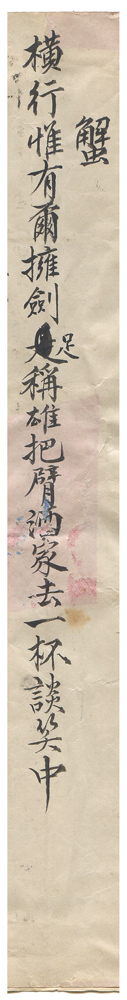 蟹
橫行惟有爾擁劍足稱雄把臂酒家去一杯談笑中